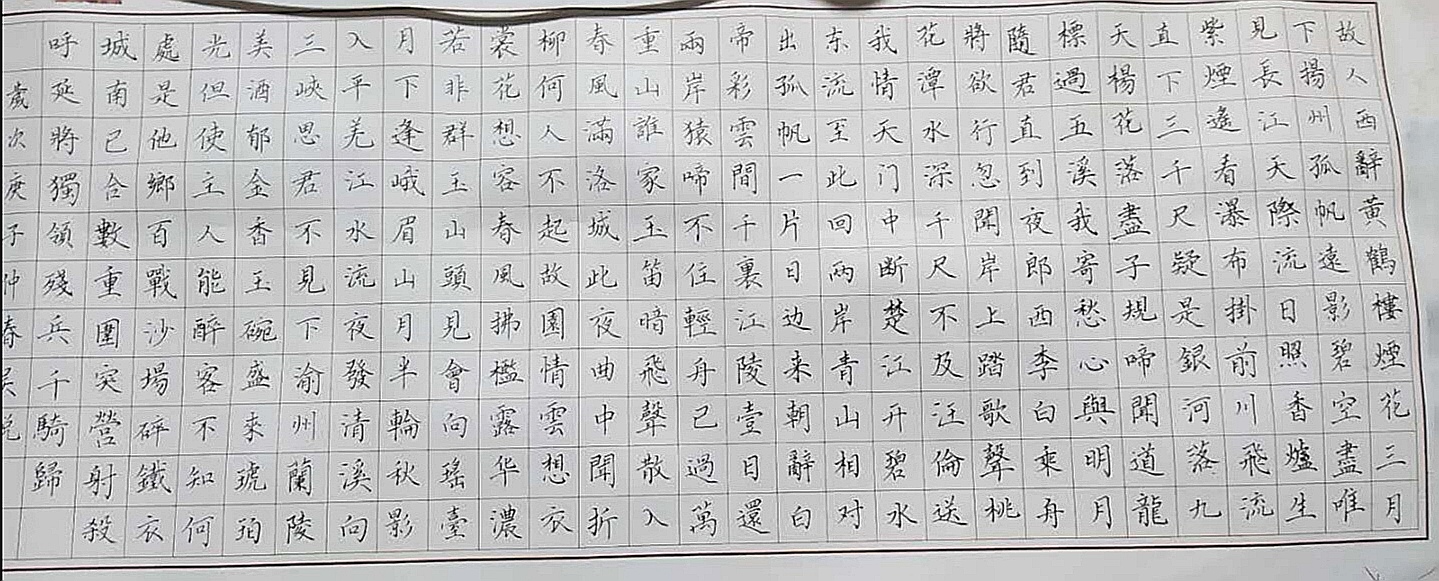 故人西辭黃鶴樓煙花三月
下揚州孤帆遠影碧空盡唯
見長江天際流日照香爐生
紫煙遙看瀑布掛前川飛流
直下三千尺疑是銀河落九
天楊花落盡子規啼聞道龍
標過五溪我寄愁心與明月
隨君直到夜郎西李白乘舟
將欲行忽聞岸上踏歌聲桃
花潭水深千尺不及汪倫送
我情天门中断楚江开碧水
东流至此回两岸青山相对
出孤帆一片日边来朝辭白
帝彩雲間千裏江陵壹日還
兩岸猿啼不住輕舟已過萬
重山誰家玉笛暗飛聲散入
春風滿洛城此夜曲中聞折
柳何人不起故園情雲想衣
裳花想容春風拂檻露华濃
若非群玉山頭見會向瑶臺
月下逢峨眉山月半輪秋影
入平羌江水流夜發清溪向
三峽思君不見下渝州蘭陵
美酒郁金香玉碗盛來琥珀
光但使主人能醉客不知何
處是他鄉百戰沙場碎鐵衣
城南已合數重圍突營射殺
呼延將獨領殘兵千騎歸
歲次庚子仲春